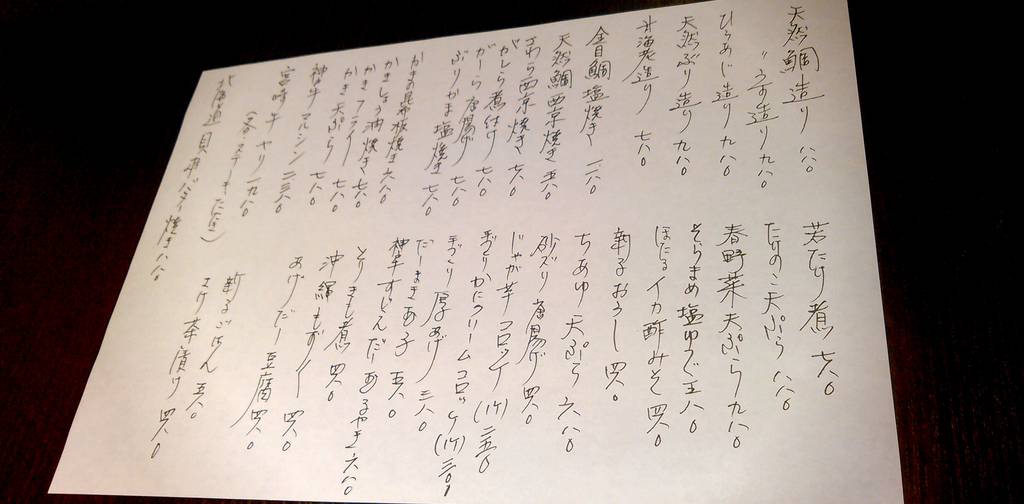 天然鯛造り 八八〇
〃うす造り 九八〇
ひらあじ造り 九八〇
天然ぶり造り 九八〇
甘海老造り 七八〇
金目鯛塩焼き 一二八〇
天然鯛西京焼き 五八〇
さわら西京焼き 七八〇
がしら煮付け 七八〇
がしら唐揚げ 七八〇
ぶりかま塩焼き 七八〇
かきの昆布板焼き 六八〇
かきしょう油焼き 七八〇
かきフライ 七八〇
かき天ぷら 七八〇
神牛マルシン 二三八〇
宮崎牛ヤリ 一九八〇
(各・ステーキ・たたき)
北海道貝柱バター焼き 八八〇
若たけ煮 七八〇
たけのこ天ぷら 八八〇
春野菜天ぷら 九八〇
そらまめ塩ゆで 五八〇
ほたるイカ酢みそ 四八〇
新子おろし 四八〇
ちあゆ天ぷら 六八〇
砂ズリ唐揚げ 四八〇
じゃが芋コロッケ(1ケ) 二五〇
手づくりかにクリームコロッケ(1ケ) 三〇〇
手づくり厚あげ 三八〇
だしまき玉子 五八〇
神牛すじどんだしあるやき 六八〇
とりきも煮 四八〇
沖縄もずく 四八〇
あげだし豆腐 四八〇
新子ごはん 五八〇
さけ茶漬け 四八〇